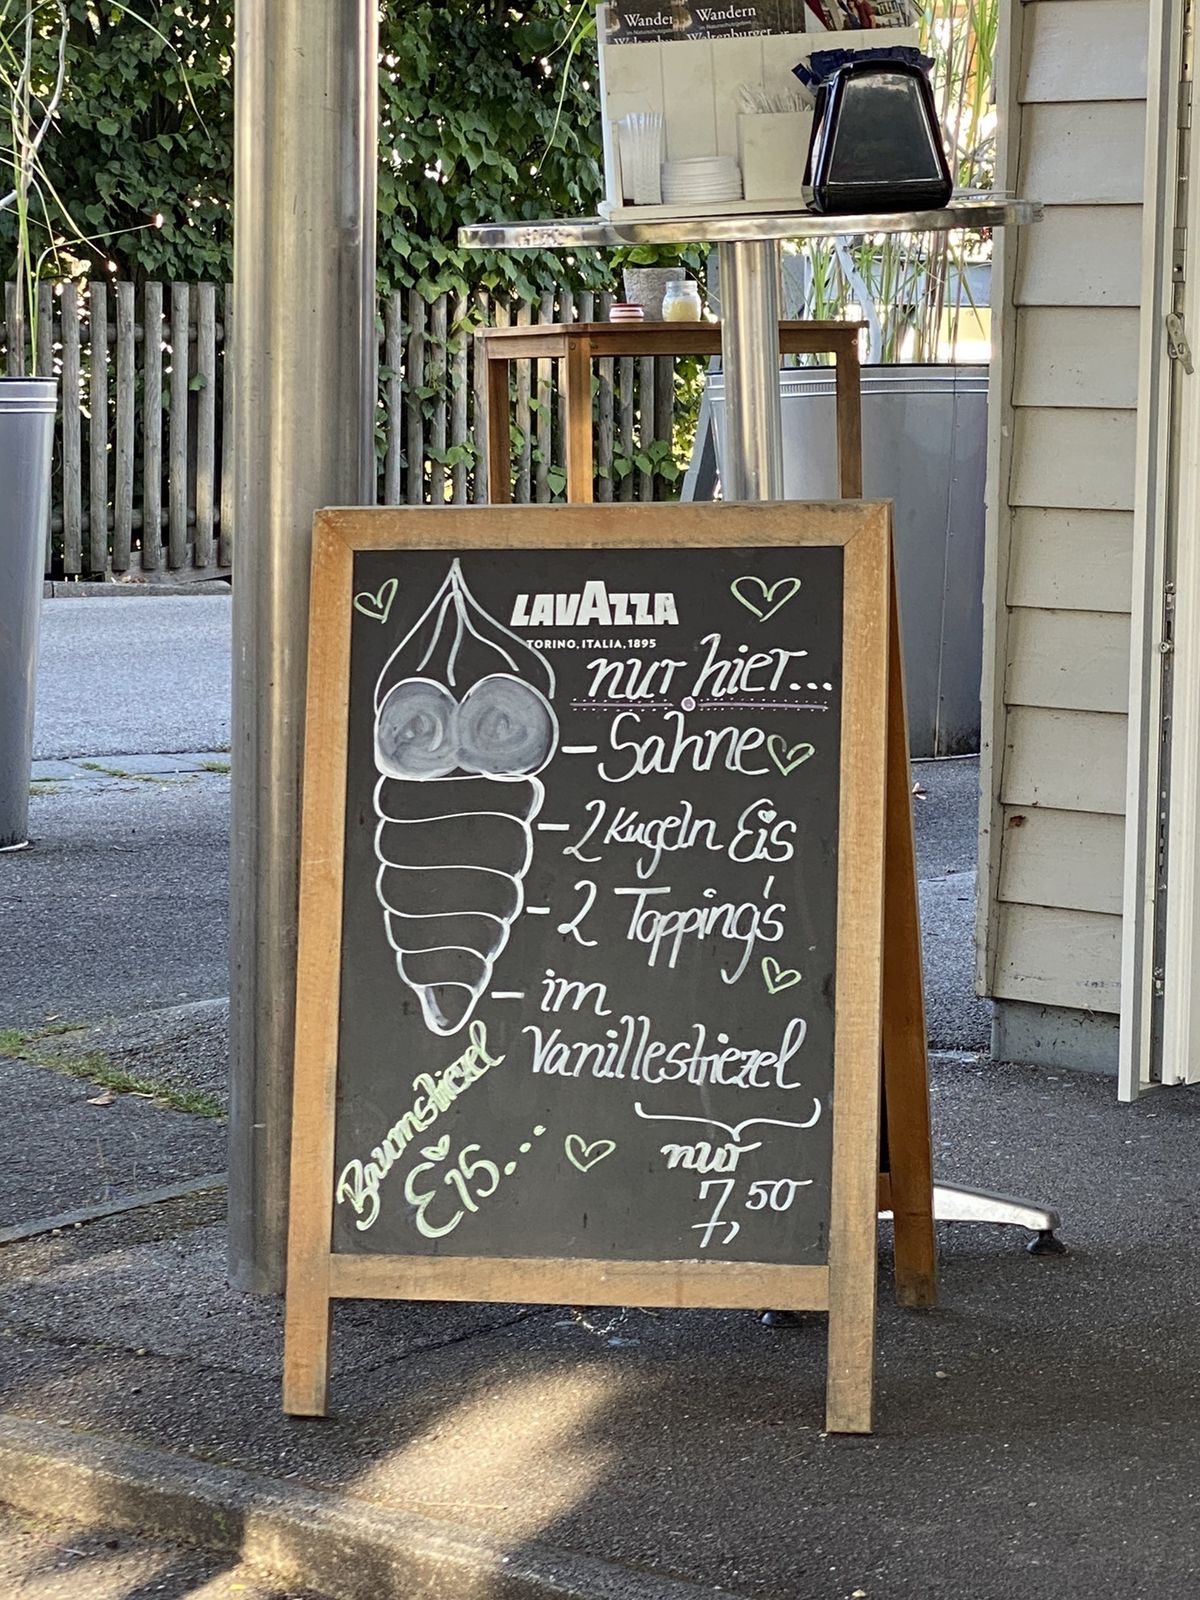 Wandern
Wandern
im Naturschutzgebiet
Weltenburger
LAVAZZA
TORINO, ITALIA, 1895
nur hier...
– Sahne
– 2 Kugeln Eis
– 2 Topping's
– im
Vanillestriezel
Baumstriezel
Eis...
nur
7,50